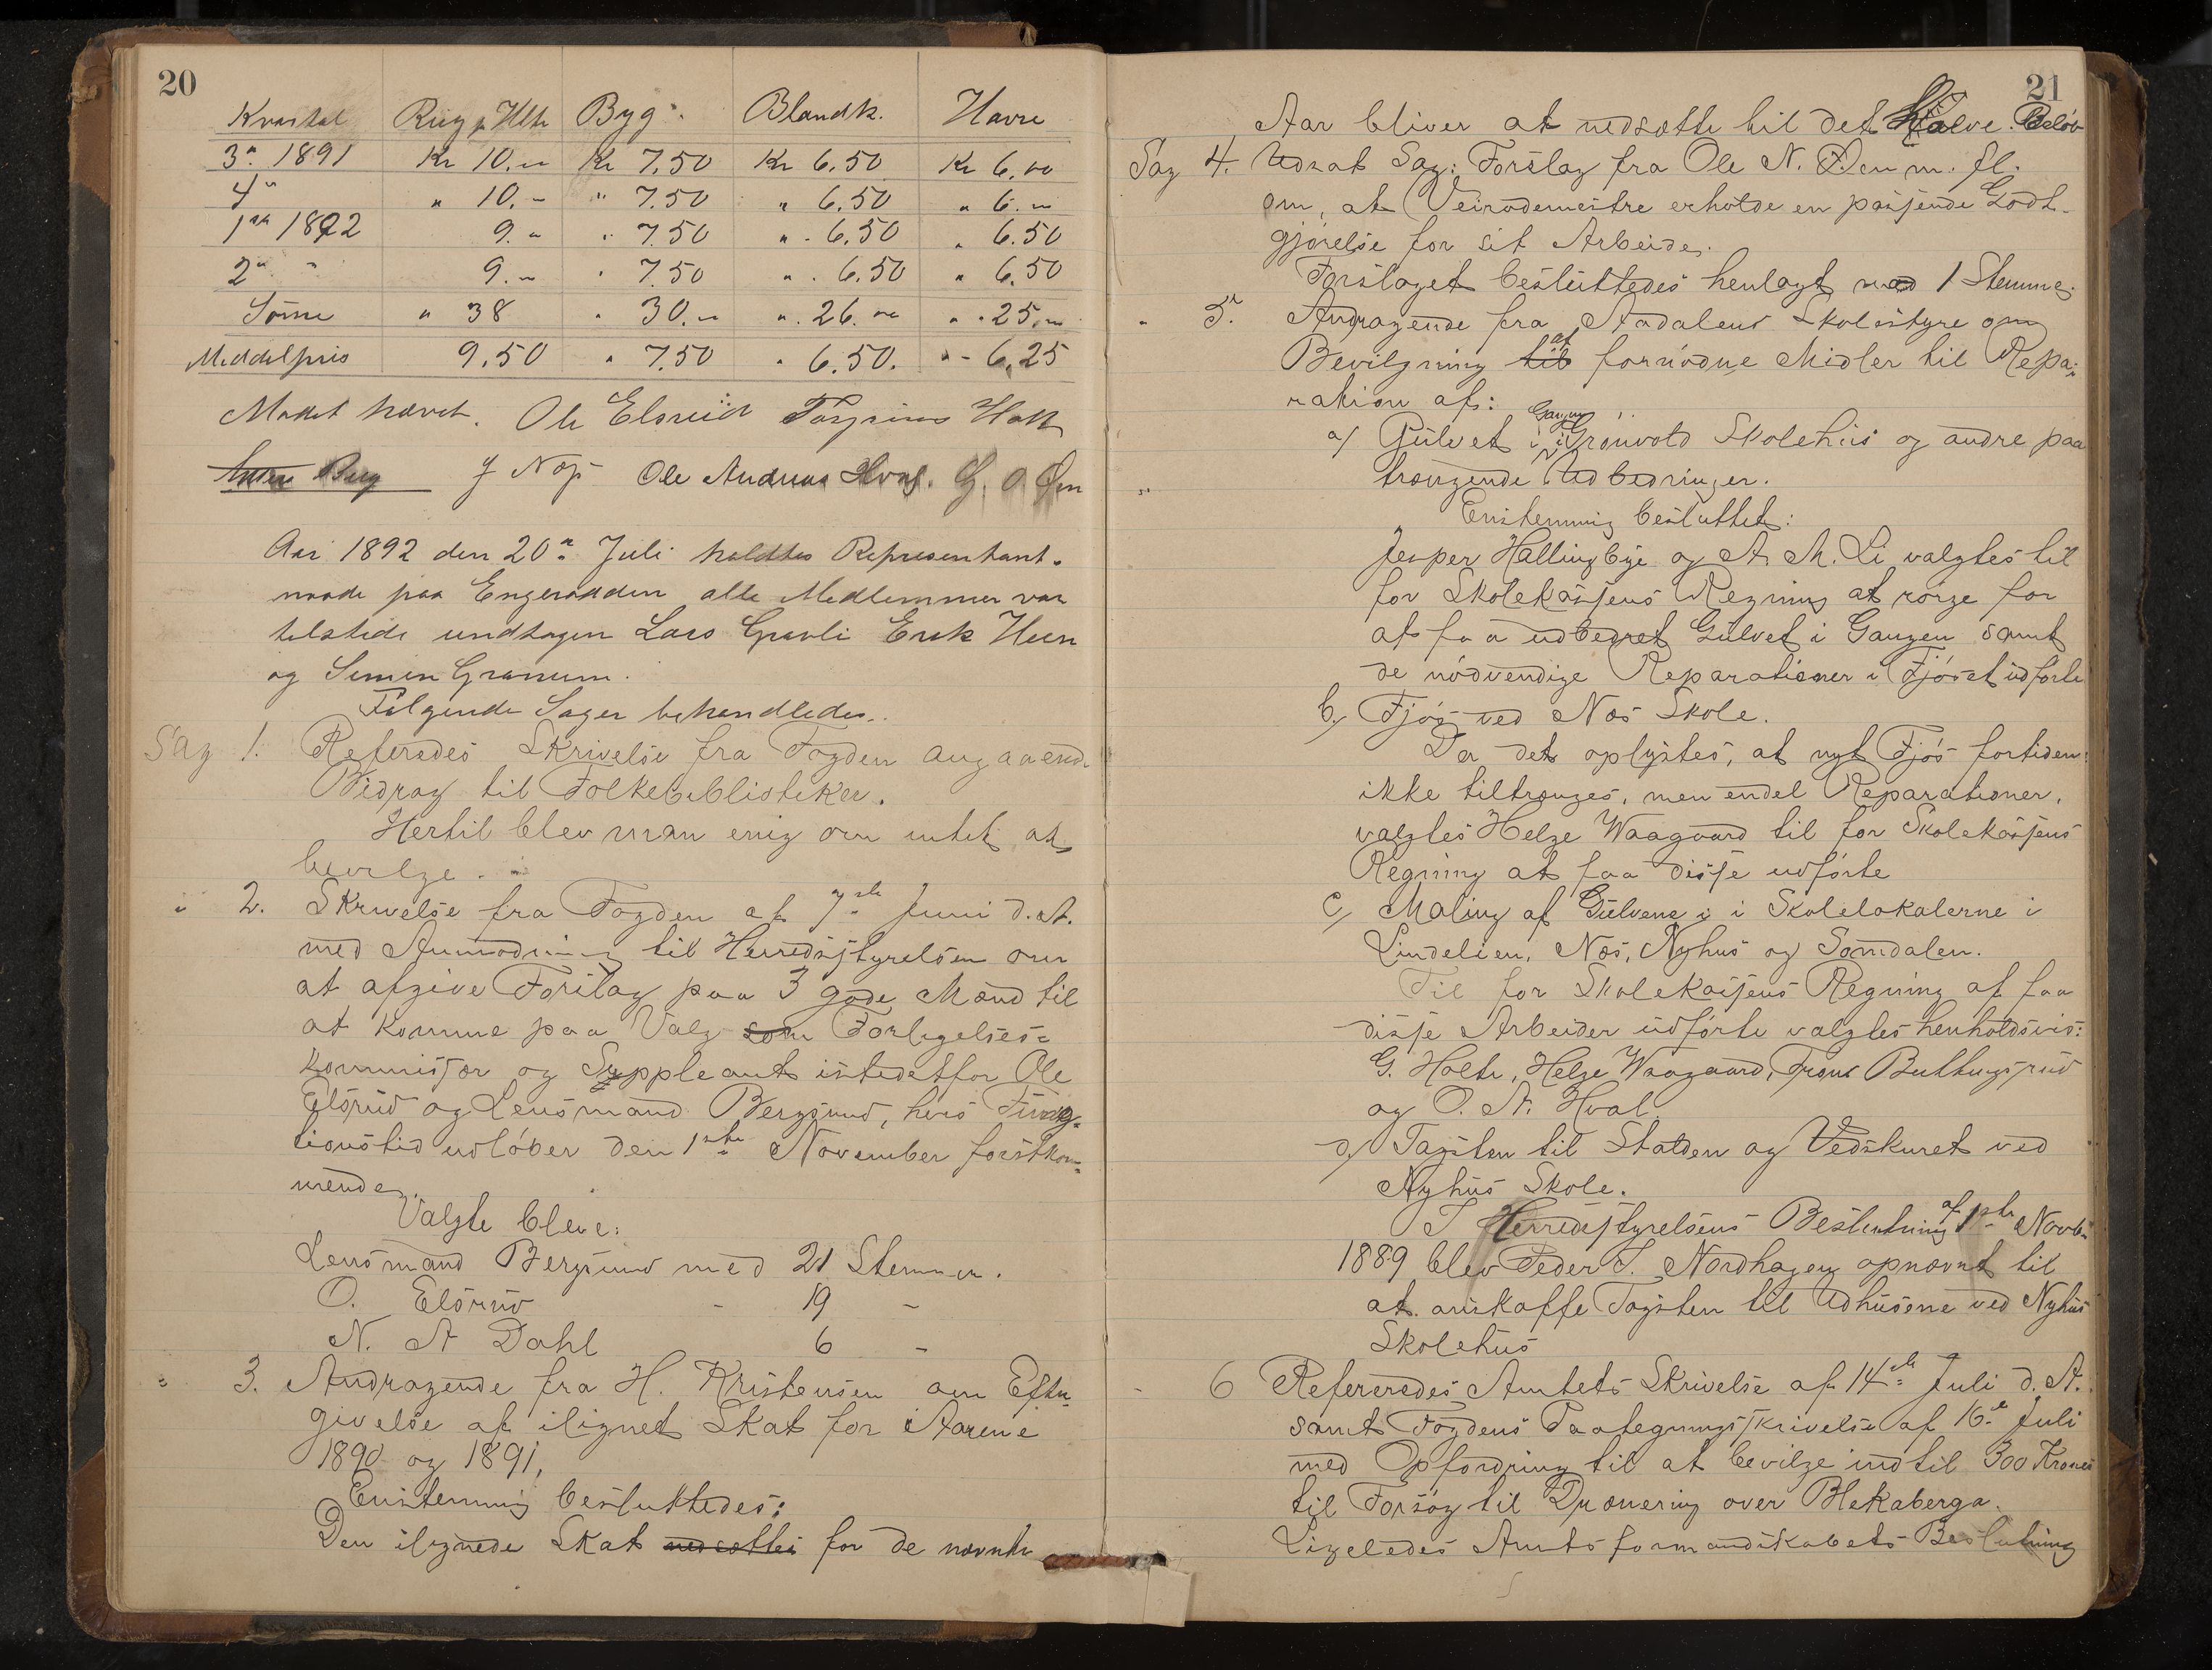 20
Kvartal Rug pr Hltr Byg " Blandk. Havre
3die 1891 Kr 10.00 Kr 7.50 Kr 6.50 Kr 6.00
4de " 10.- " 7.50 " 6.50 " 6.00
1ste 1892 9.- " 7.50 " 6.50 " 6.50
2den " 9.- " 7.50 " 6.50 " 6.50
Summe " 38 " 30.- " 26.00 " 25.00
Middelpris 9.50 " 7.50 " 6.50. " 6.25
Mødet hævet. Ole Elsrud Torgrim Holte
Anders Berg Ole Andreas Hval. G. O. Øen
Aar 1892 den 20de Juli holdtes Representant-
møde paa Engerodden alle Medlemmer var
tilstede undtagen Lars Gravli Erik Heen
og Simen Granum.
Følgende Sager behandledes.
Sag 1. Refereredes Skrivelse fra Fogden angaaende
Bidrag til Folkebibliotheker.
Hertil blev man enig om intet at
bevilge.
" 2. Skrivelse fra Fogden af 7de Juni d.A.
med Anmodning til Herredsstyrelsen om
at afgive Forslag paa 3 gode Mænd til
at komme paa Valg som Forligelses-
kommisær og Suppleant istedetfor Ole
Elsrud og Lensmand Bergsund, hvis Fung-
tionstid udløber den 1ste November førstkom-
mende.
Valgte bleve:
Lensmand Bergsund med 21 Stemmer.
O. Elsrud - 19 -
N. A Dahl 6 -
" 3. Andragende fra H. Kristensen om Efter-
givelse af ilignet Skat for Aarene
1890 og 1891.
Enstemmig besluttedes:
Den ilignede Skat nedsættes for de nævnte
21
Aar bliver at nedsætte til det Halve Beløb
Sag 4. Udsat Sag: Forslag fra Ole N. Øen m. fl.
om, at Veirodemestre erholde en passende Godt-
gjørelse for sit Arbeide.
Forslaget besluttedes henlagt mod 1 Stemme.
" 5. Andragende fra Aadalens Skolestyre om
Bevilgning til af fornødne Midler til Repa-
ration af:
a) Gulvet i Gangen i Grønvold Skolehus og andre paa
trængende Udbedringer.
Enstemmig besluttet:
Jesper Hallingbye og A. M. Li valgtes til
for Skolekassens Regning at sørge for
at faa udbedret Gulvet i Gangen samt
de nødvendige Reparationer i Fjøset udførte
b) Fjøs ved Næs Skole.
Da det oplystes, at nyt Fjøs fortiden
ikke tiltrænges, men endel Reparationer,
valgtes Helge Waagaard til for Skolekassens
Regning at faa disse udførte
c) Maling af Gulvene i Skolelokalerne i
Lindelien, Næs, Nyhus og Sømdalen.
Til for Skolekassens Regning at faa
disse Arbeider udførte valgtes henholdsvis:
G. Holte, Helge Waagaard, Trond Buttingsrud
og O. A. Hval.
d) Tagsten til Stalden og Vedskuret ved
Nyhus Skole.
I Herredsstyrelsens Beslutning af 1ste Novbr
1889 blev Peder T. Nordhagen opnævnt til
at anskaffe Tagsten til Udhusene ved Nyhus
Skolehus
" 6 Refereredes Amtets Skrivelse af 14de Juli d. A.
samt Fogdens Paategningsskrivelse af 16de Juli
med Opfordring til at bevilge indtil 300 Kroner
til Forsøg til Drænering over Blekaberga.
Ligeledes Amtsformandskabets Beslutning